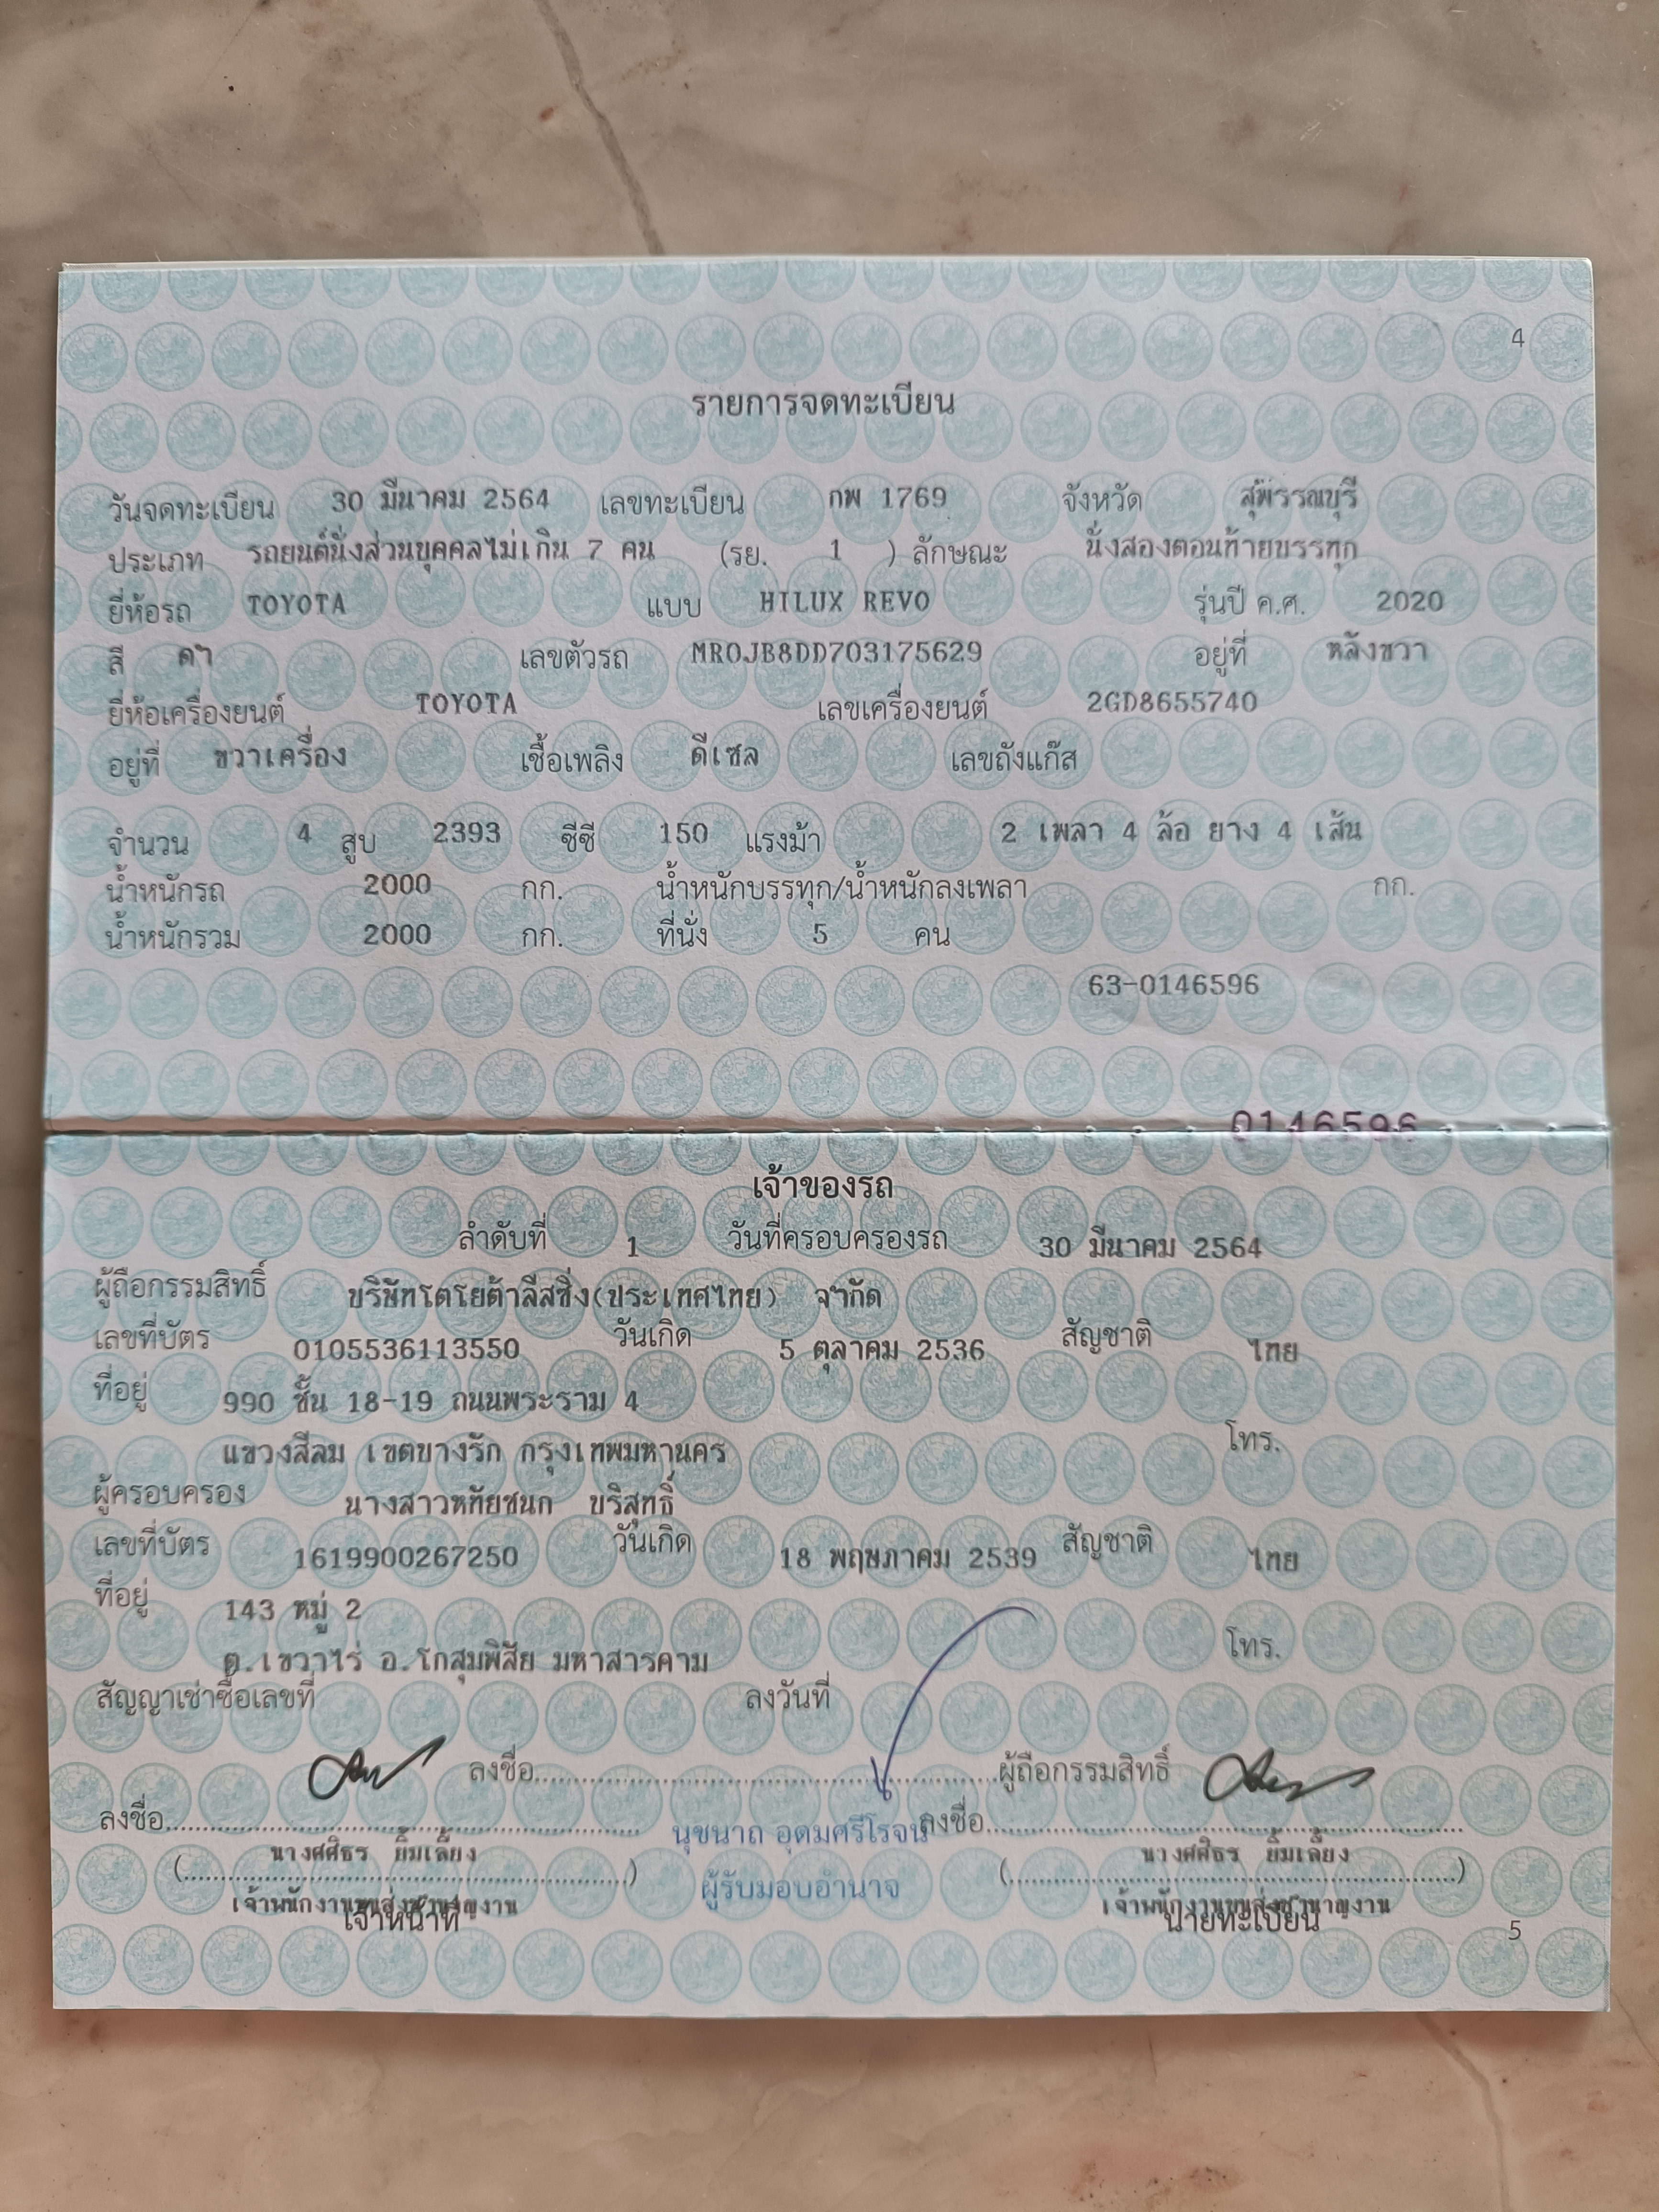 4
รายการจดทะเบียน
วันจดทะเบียน 30 มีนาคม 2564 เลขทะเบียน กพ 1769 จังหวัด สุพรรณบุรี
ประเภท รถยนต์นั่งส่วนบุคคลไม่เกิน 7 คน (รย. 1 ) ลักษณะ นั่งสองตอนท้ายบรรทุก
ยี่ห้อรถ TOYOTA แบบ HILUX REVO รุ่นปี ค.ศ. 2020
สี ดำ เลขตัวรถ MR0JB8DD703175629 อยู่ที่ หลังขวา
ยี่ห้อเครื่องยนต์ TOYOTA เลขเครื่องยนต์ 2GD8655740
อยู่ที่ ขวาเครื่อง เชื้อเพลิง ดีเซล เลขถังแก๊ส
จำนวน 4 สูบ 2393 ซีซี 150 แรงม้า 2 เพลา 4 ล้อ ยาง 4 เส้น
น้ำหนักรถ 2000 กก. น้ำหนักบรรทุก/น้ำหนักลงเพลา กก.
น้ำหนักรวม 2000 กก. ที่นั่ง 5 คน
63-0146596
0146596
เจ้าของรถ
ลำดับที่ 1 วันที่ครอบครองรถ 30 มีนาคม 2564
ผู้ถือกรรมสิทธิ์ บริษัทโตโยต้าลีสซิ่ง(ประเทศไทย) จำกัด
เลขที่บัตร 0105536113550 วันเกิด 5 ตุลาคม 2536 สัญชาติ ไทย
ที่อยู่ 990 ชั้น 18-19 ถนนพระราม 4
แขวงสีลม เขตบางรัก กรุงเทพมหานคร โทร.
ผู้ครอบครอง นางสาวหทัยชนก บริสุทธิ์
เลขที่บัตร 1619900267250 วันเกิด 18 พฤษภาคม 2539 สัญชาติ ไทย
ที่อยู่ 143 หมู่ 2
ต.เขวาไร่ อ.โกสุมพิสัย มหาสารคาม โทร.
สัญญาเช่าซื้อเลขที่ ลงวันที่
ลงชื่อ..........ผู้ถือกรรมสิทธิ์
ลงชื่อ.......... นุชนาถ อุดมศรีโรจน์ ลงชื่อ..........
(นางศศิธร ยิ้มเลี้ยง) ผู้รับมอบอำนาจ (นางศศิธร ยิ้มเลี้ยง)
เจ้าพนักงานขนส่งชำนาญงาน เจ้าพนักงานขนส่งชำนาญงาน
เจ้าหน้าที่ นายทะเบียน 5